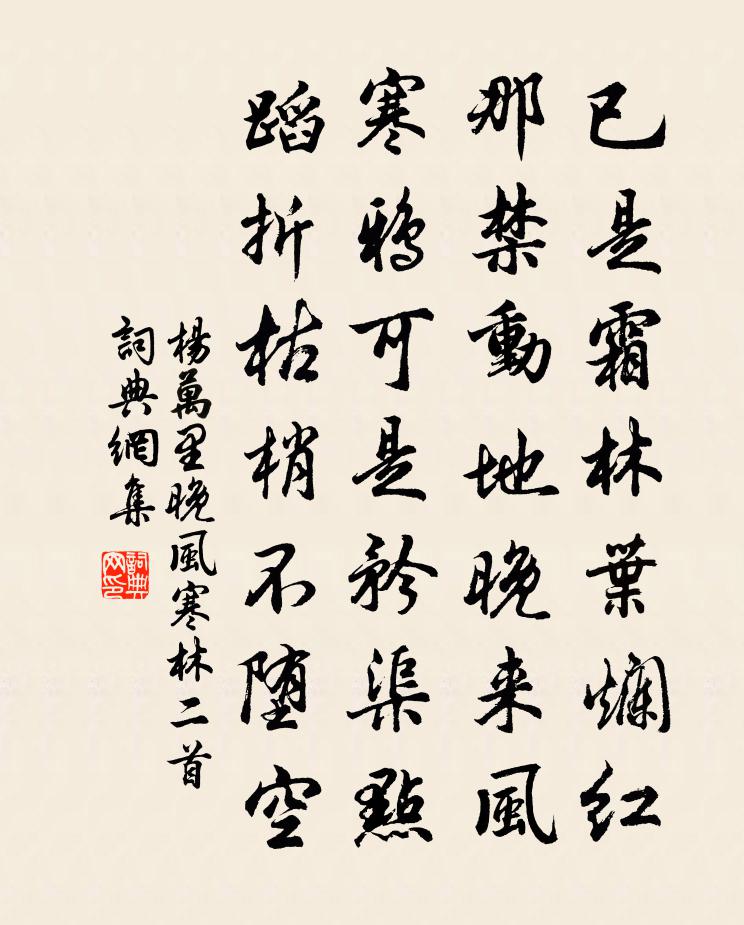 已是霜林葉爛紅
那禁動地晚來風
寒鴉可是矜渠黠
蹈折枯梢不墮空
楊萬里晚風寒林二首
詞典網集
詞典
网印